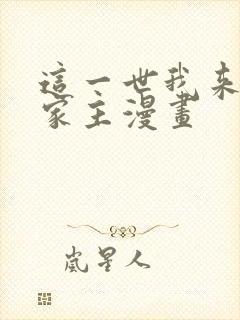 這一世我來
家主漫畫
嵐星人